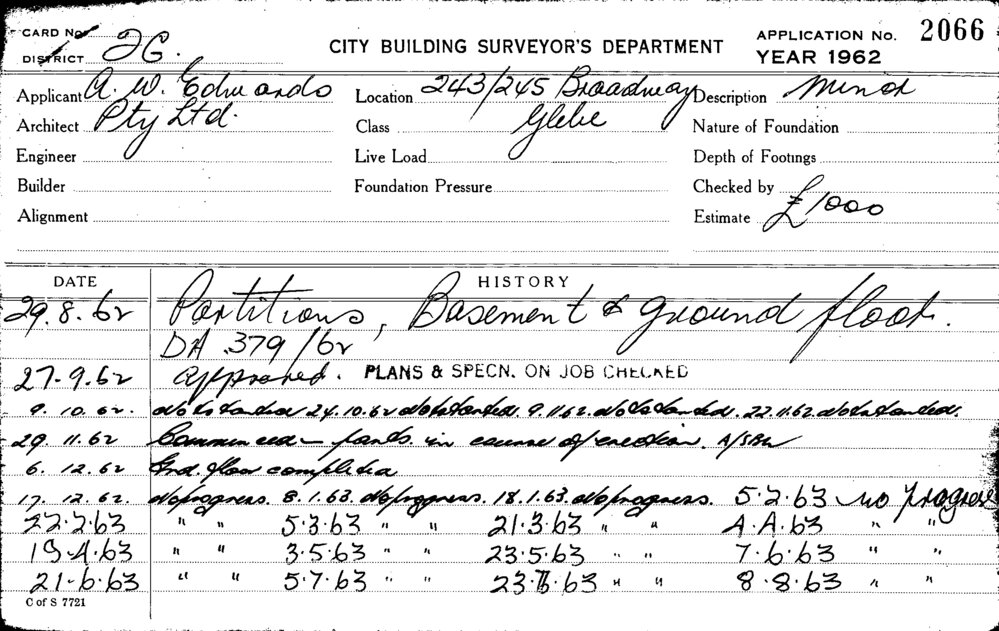 CARD No. 2G. CITY BUILDING SURVEYOR'S DEPARTMENT APPLICATION No. 2066
DISTRICT YEAR 1962
Applicant A. W. Edwards Location 243/245 Broadway Description Minor
Architect Pty Ltd. Class Glebe Nature of Foundation
Engineer Live Load Depth of Footings
Builder Foundation Pressure Checked by
Alignment Estimate £1000
DATE HISTORY
29.8.62 Partitions, Basement & ground floor.
DA 379/62
27.9.62 approved. PLANS & SPECN. ON JOB CHECKED
9.10.62. Not started 24.10.62 Not started. 9.11.62. Not started. 22.11.62 Not started.
29.11.62 Commenced – in course of erection.
6.12.62 Grd. floor completed
17.12.62. No progress. 8.1.63. No progress. 18.1.63. No progress. 5.2.63 no progress
22.2.63 " " 5.3.63 " " 21.3.63 " " 4.4.63 " "
19.4.63 " " 3.5.63 " " 23.5.63 " " 7.6.63 " "
21.6.63 " " 5.7.63 " " 23.7.63 " " 8.8.63 " "
C of S 7721